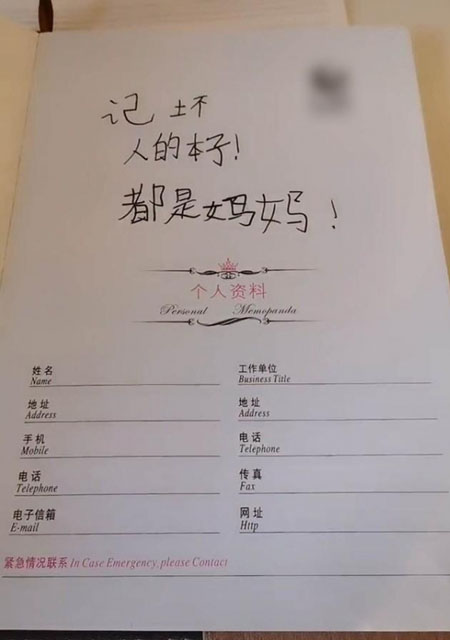 记 坏
人的本子!
都是妈妈!
个人资料
Personal Memopanda
姓名
Name
工作单位
Business Title
地址
Address
地址
Address
手机
Mobile
电话
Telephone
电话
Telephone
传真
Fax
电子信箱
E-mail
网址
Http
紧急情况联系 In Case Emergency, please Contact